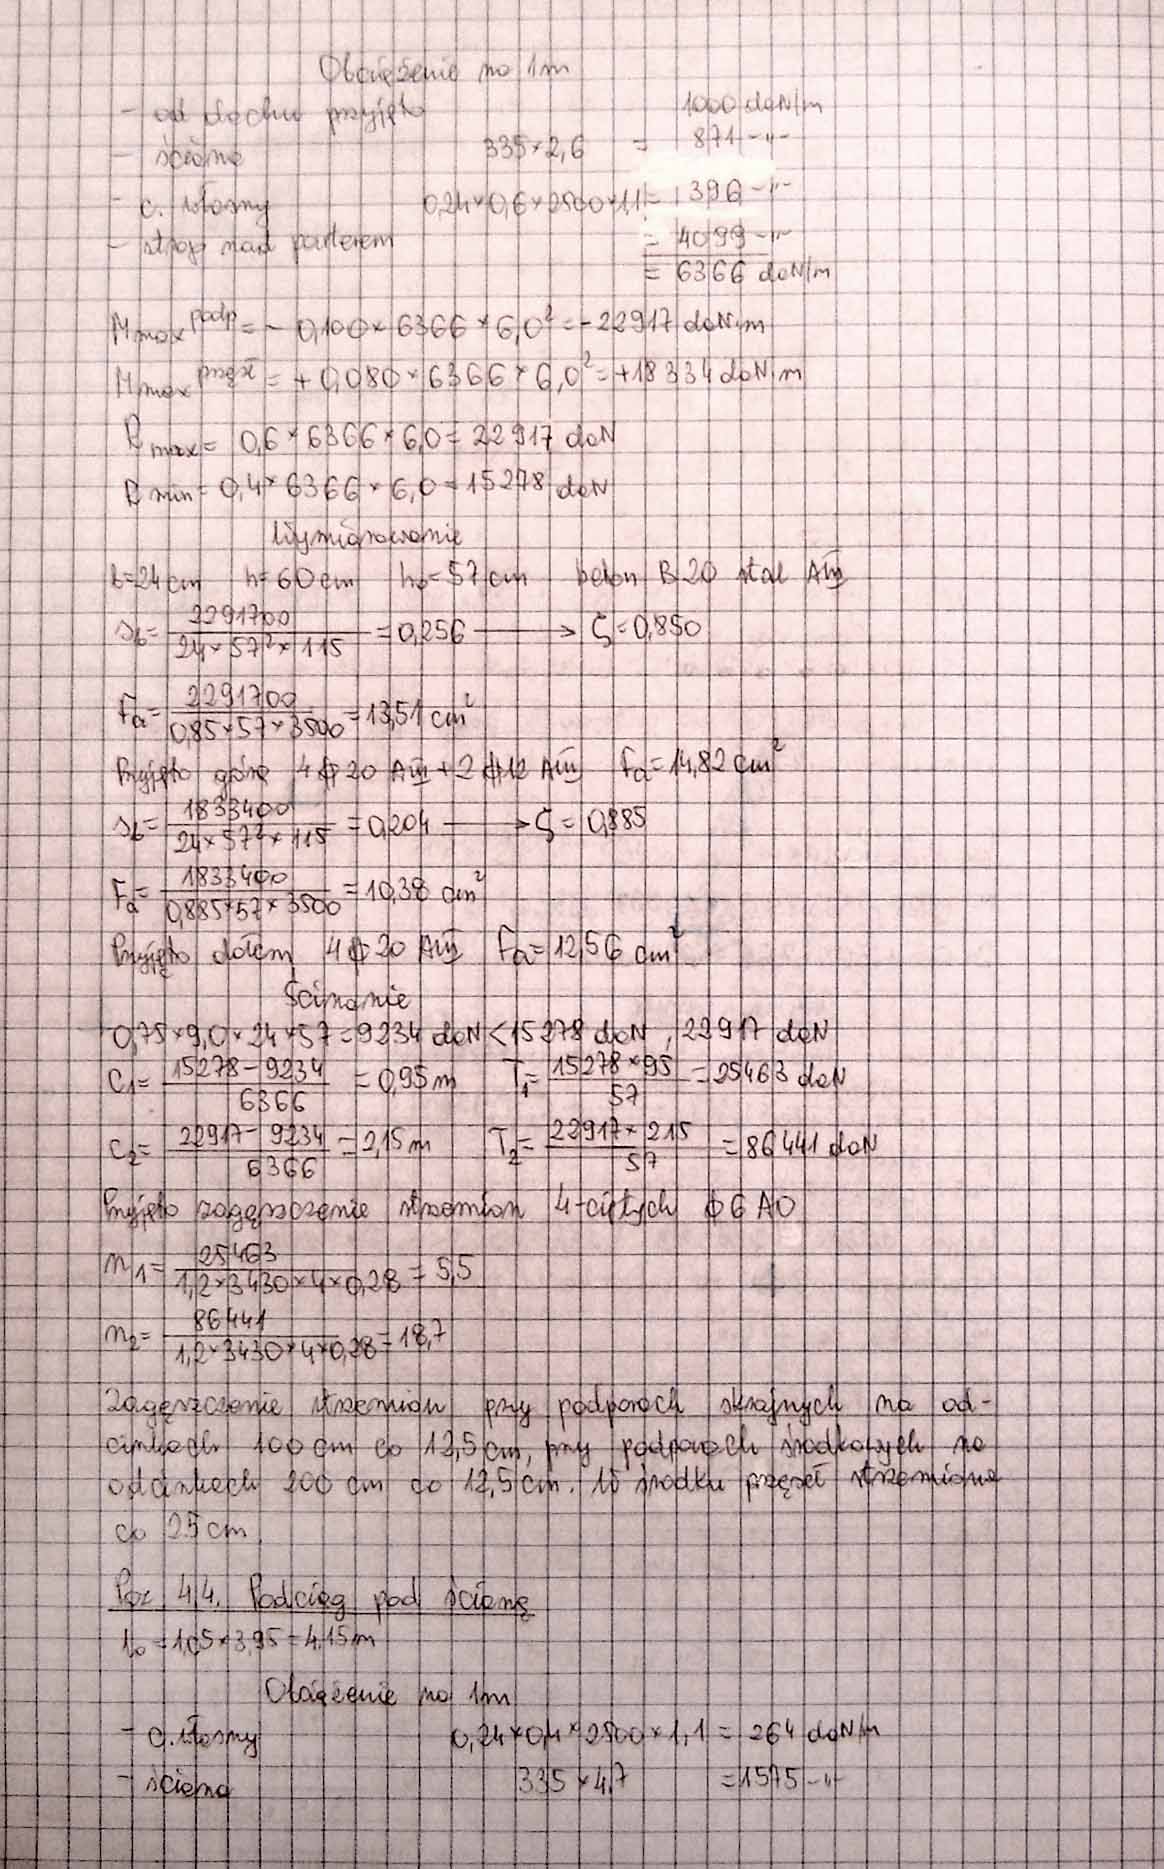 Obciążenie na 1m
- od dachu przyjęto 1000 daN/m
- ściana 335×2,6 = 871 -"-
- c. własny 0,24×0,6×2500×1,1= 396 -"-
- strop nad parterem = 4099 -"-
= 6366 daN/m
Mmax podp = - 0,100×6366×6,0² = -22917 daNm
Mmax przęsł = +0,080×6366×6,0² = +18334 daNm
Rmax = 0,6×6366×6,0 = 22917 daN
Rmin = 0,4×6366×6,0 = 15278 daN
Wymiarowanie
b=24cm h=60cm ho=57cm beton B-20 stal AIII
sb = 2291700 / 24×57²×115 = 0,256 → ζ=0,850
Fa = 2291700 / 0,85×57×3500 = 13,51 cm²
Przyjęto górą 4 ϕ 20 AIII + 2 ϕ 12 AIII Fa=14,82 cm²
sb = 1833400 / 24×57²×115 = 0,204 → ζ=0,885
Fa = 1833400 / 0,885×57×3500 = 10,38 cm²
Przyjęto dołem 4 ϕ 20 AIII Fa=12,56 cm²
Ścinanie
0,75×9,0×24×57=9234 daN < 15278 daN, 22917 daN
C1 = 15278-9234 / 6366 = 0,95m T1 = 15278×95 / 57 = 25463 daN
C2 = 22917-9234 / 6366 = 2,15m T2 = 22917×215 / 57 = 86441 daN
Przyjęto zagęszczenie strzemion 4-ciętych ϕ 6 A0
n1 = 25463 / 1,2×3430×4×0,28 = 5,5
n2 = 86441 / 1,2×3430×4×0,28 = 18,7
Zagęszczenie strzemion przy podporach skrajnych na od-
cinkach 100 cm co 12,5cm, przy podporach środkowych na
odcinkach 200 cm co 12,5cm. W środku przęseł strzemiona
co 25 cm.
Poz 4.4. Podciąg pod ścianę
lo = 1,05×3,95 = 4,15m
Obciążenie na 1m
- c. własny 0,24×0,4×2500×1,1 = 264 daN/m
- ściana 335×4,7 = 1575 -"-